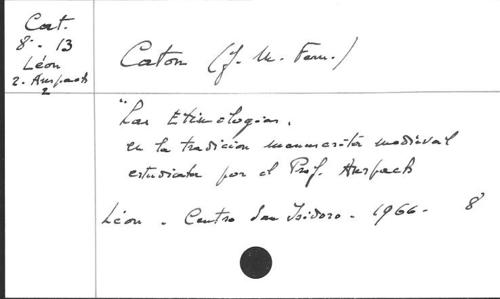 Cat.
8° - 13
Léon
2. Anspach
2
Caton (J. M. Fern.)
"Las Etimologias.
en la tradicion manuscrita medieval
estudiata por el Prof. Anspach
Léon - Centro San Isidoro - 1966 - 8°